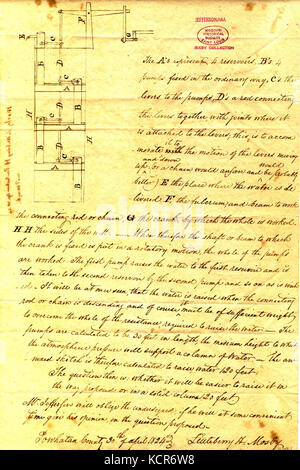 JEFFERSONIANA
MISSOURI
HISTORICAL
SOCIETY
SAINT LOUIS
BIXBY COLLECTION
The A's represent the reservoirs, B's 4
pumps fixed in the ordinary way, C's the
levers to the pumps, D's a rod connecting
the levers together with joints where it
is attached to the levers, this is to accom
modate with the motion of the levers moving
up and down (or a chain would answer and be probably
better) E the place where the water is de
livered F the fulcrum and beam to work
the connecting rod or chain, G the crank by which the whole is worked.
H H the sides of the well. When therefore the shaft or beam to which
the crank is fixed is put in a rotatory motion, the whole of the pumps
are worked. The first pump raises the water to the first reservoir and is
then taken to the second reservoir by the second pump and so on as is wish
ed. It will be at once seen that the water is raised when the connecting
rod or chain is descending and of course must be of sufficient weight
to overcome the whole of the resistance required to raise the water — The
pumps are calculated to be 30 feet in length, the medium height to which
the atmospheric pressure will support a column of water — the an
nexed sketch is therefore calculated to raise water 120 feet.
The question then is: whether it will be easier to raise it in
the way proposed or in a solid column 120 feet
Mr. Jefferson will oblige the undersigned if he will at some convenient
time give his opinion, on the question proposed.
Powhatan County, 30th of April 1824
Littleberry H. Mosby
alamy
Image ID: CEC6W8
www.alamy.com